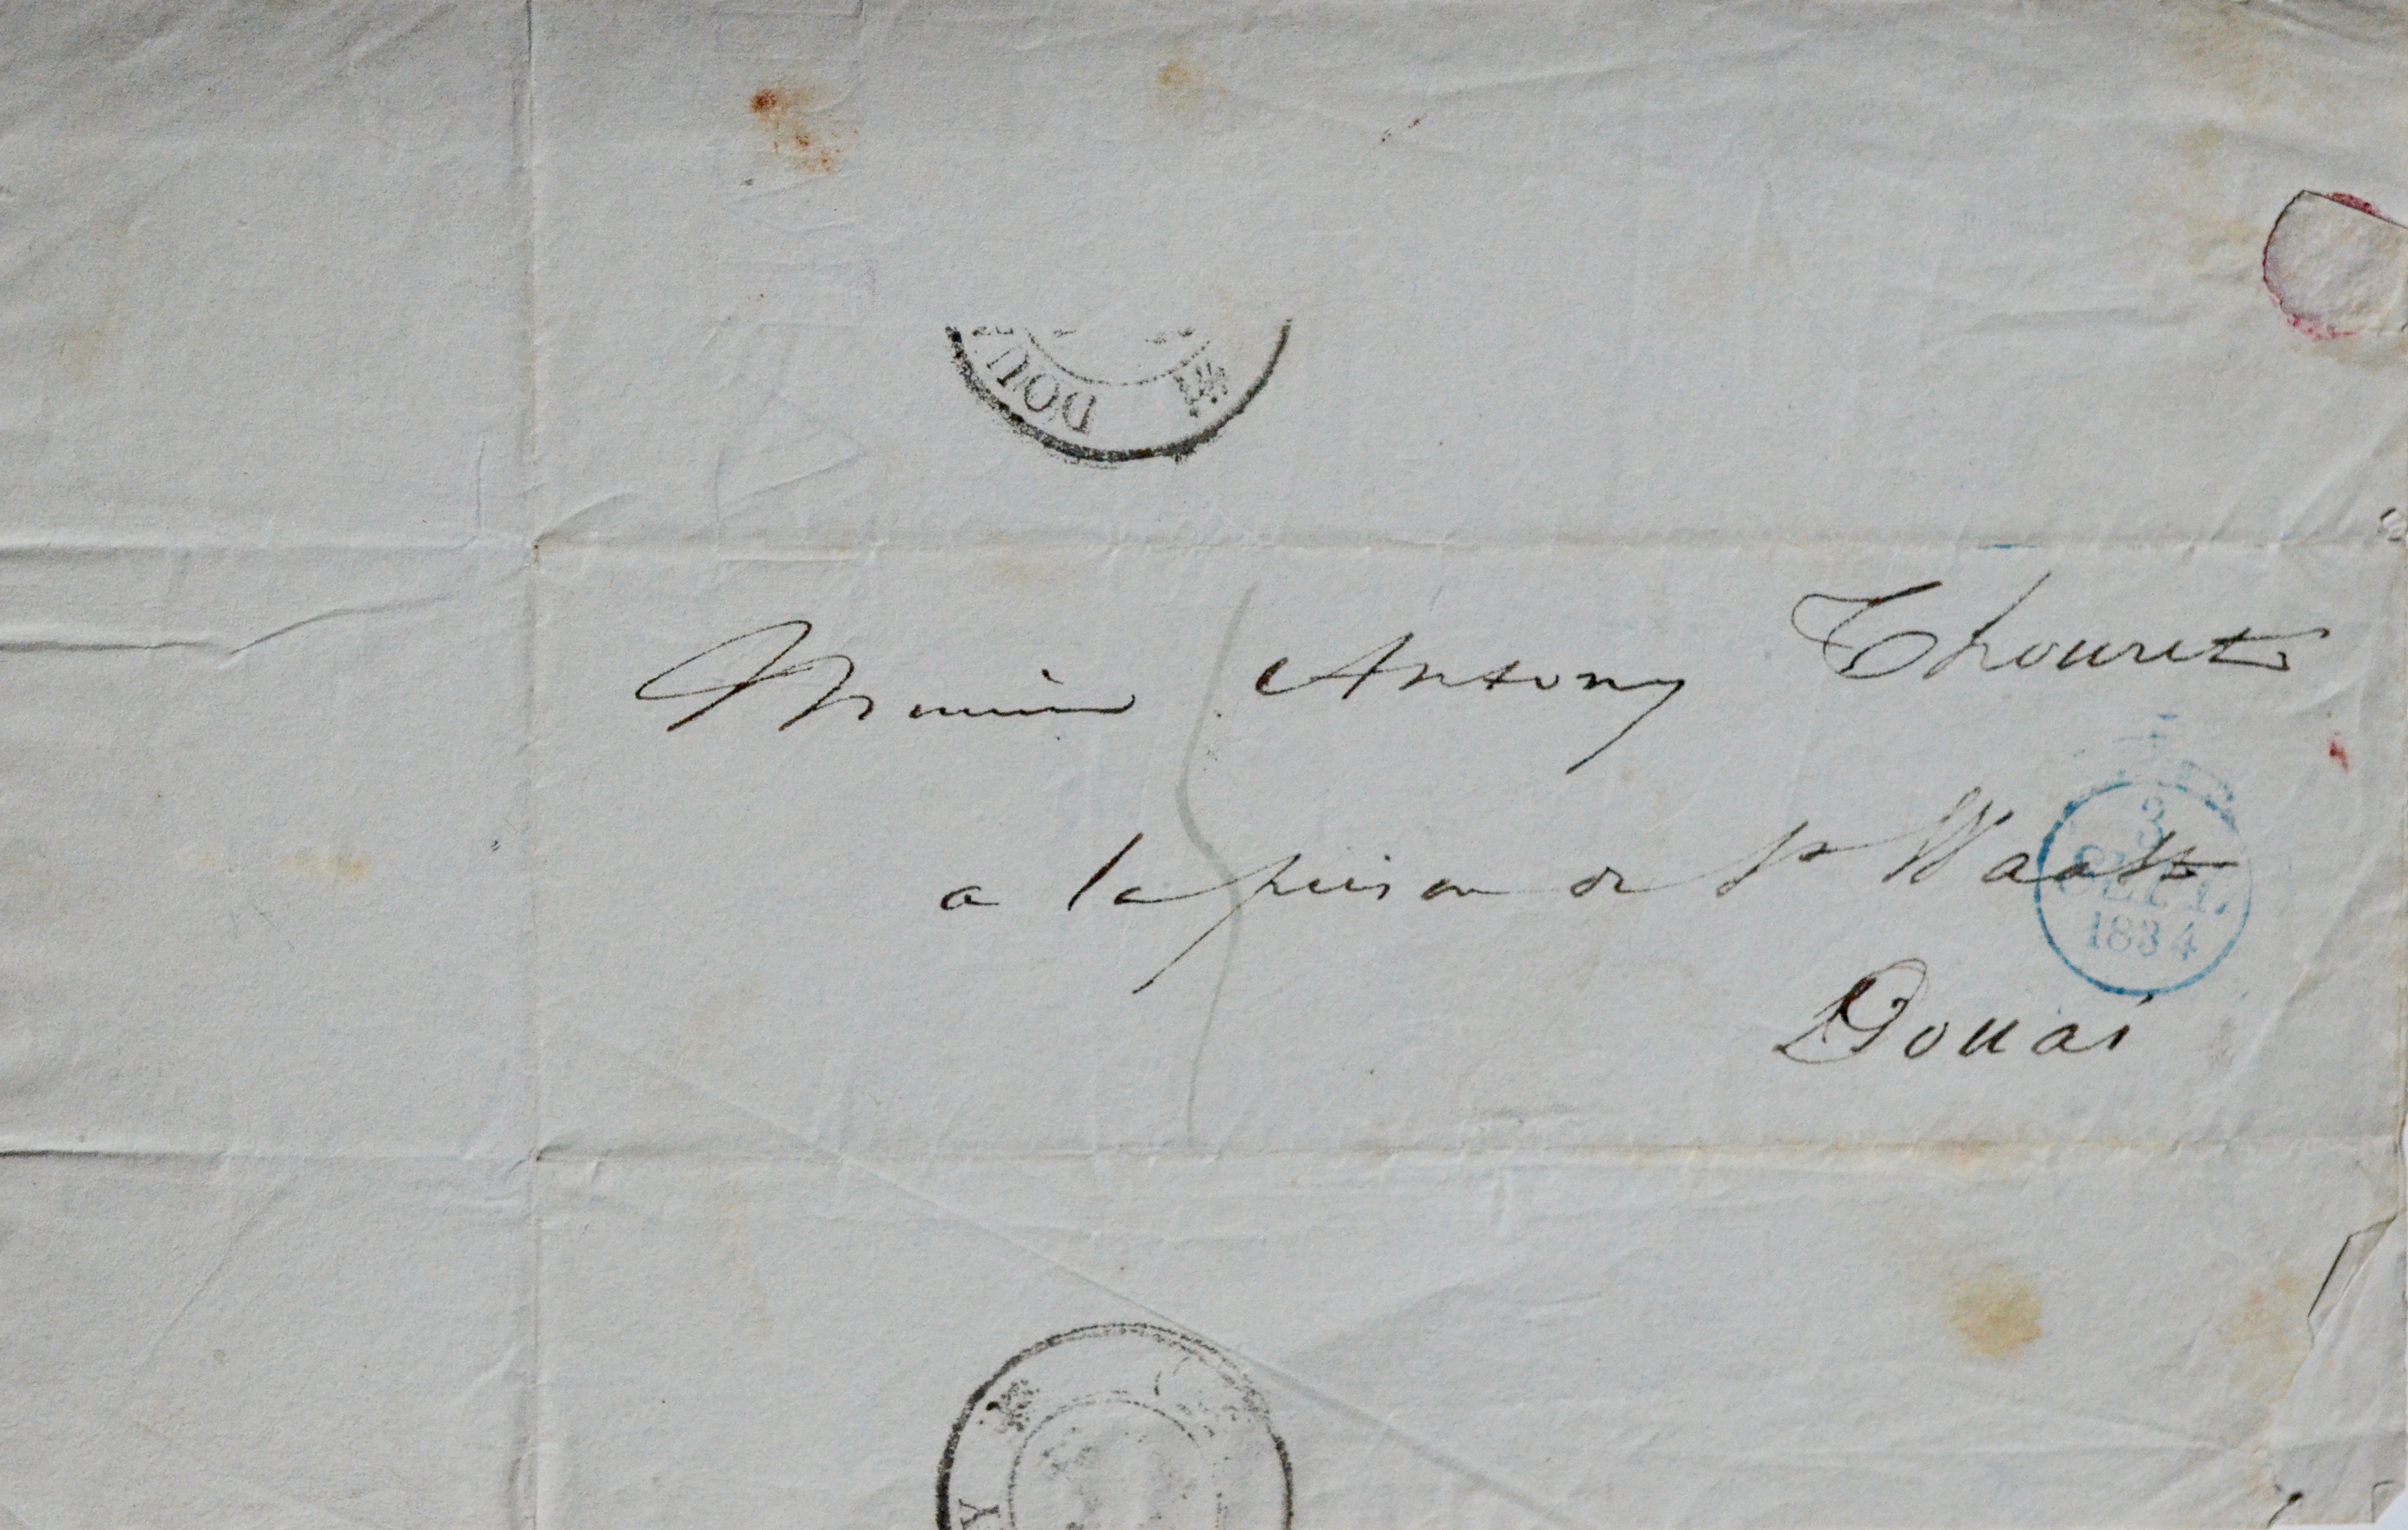 DOU
Monsieur Antony Thouret
a la prison de St Waast
3
SEPT.
1834
Douai
Y